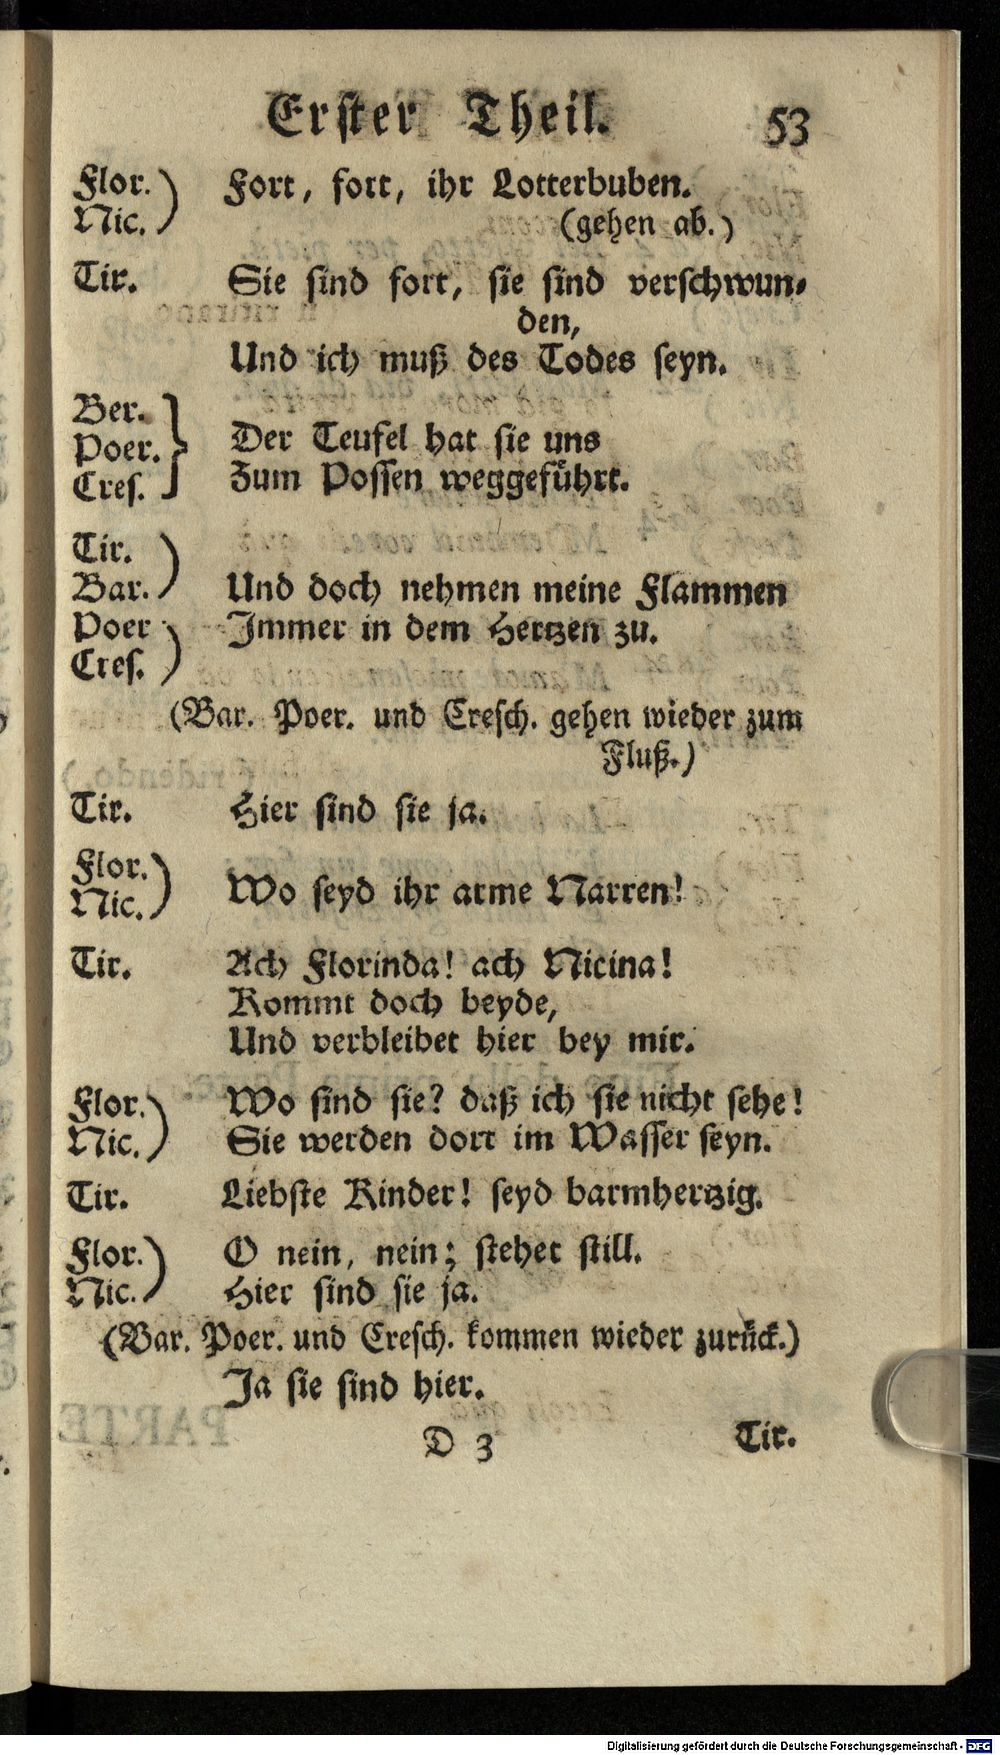 Erster Theil. 53
Flor.) Fort, fort, ihr Lotterbuben.
Nic. ) (gehen ab.)
Tir. Sie sind fort, sie sind verschwun-
den,
Und ich muß des Todes seyn.
Ber. }
Poer. } Der Teufel hat sie uns
Cres. } Zum Possen weggeführt.
Tir. )
Bar. ) Und doch nehmen meine Flammen
Poer ) Immer in dem Hertzen zu.
Cres. )
(Bar. Poer. und Cresch. gehen wieder zum
Fluß.)
Tir. Hier sind sie ja.
Flor.)
Nic. ) Wo seyd ihr arme Narren!
Tir. Ach Florinda! ach Nicina!
Kommt doch beyde,
Und verbleibet hier bey mir.
Flor.) Wo sind sie? daß ich sie nicht sehe!
Nic. ) Sie werden dort im Wasser seyn.
Tir. Liebste Kinder! seyd barmhertzig.
Flor.) O nein, nein; stehet still.
Nic. ) Hier sind sie ja.
(Bar. Poer. und Cresch. kommen wieder zurück.)
Ja sie sind hier.
D 3 Tir.
Digitalisierung gefördert durch die Deutsche Forschungsgemeinschaft - DFG